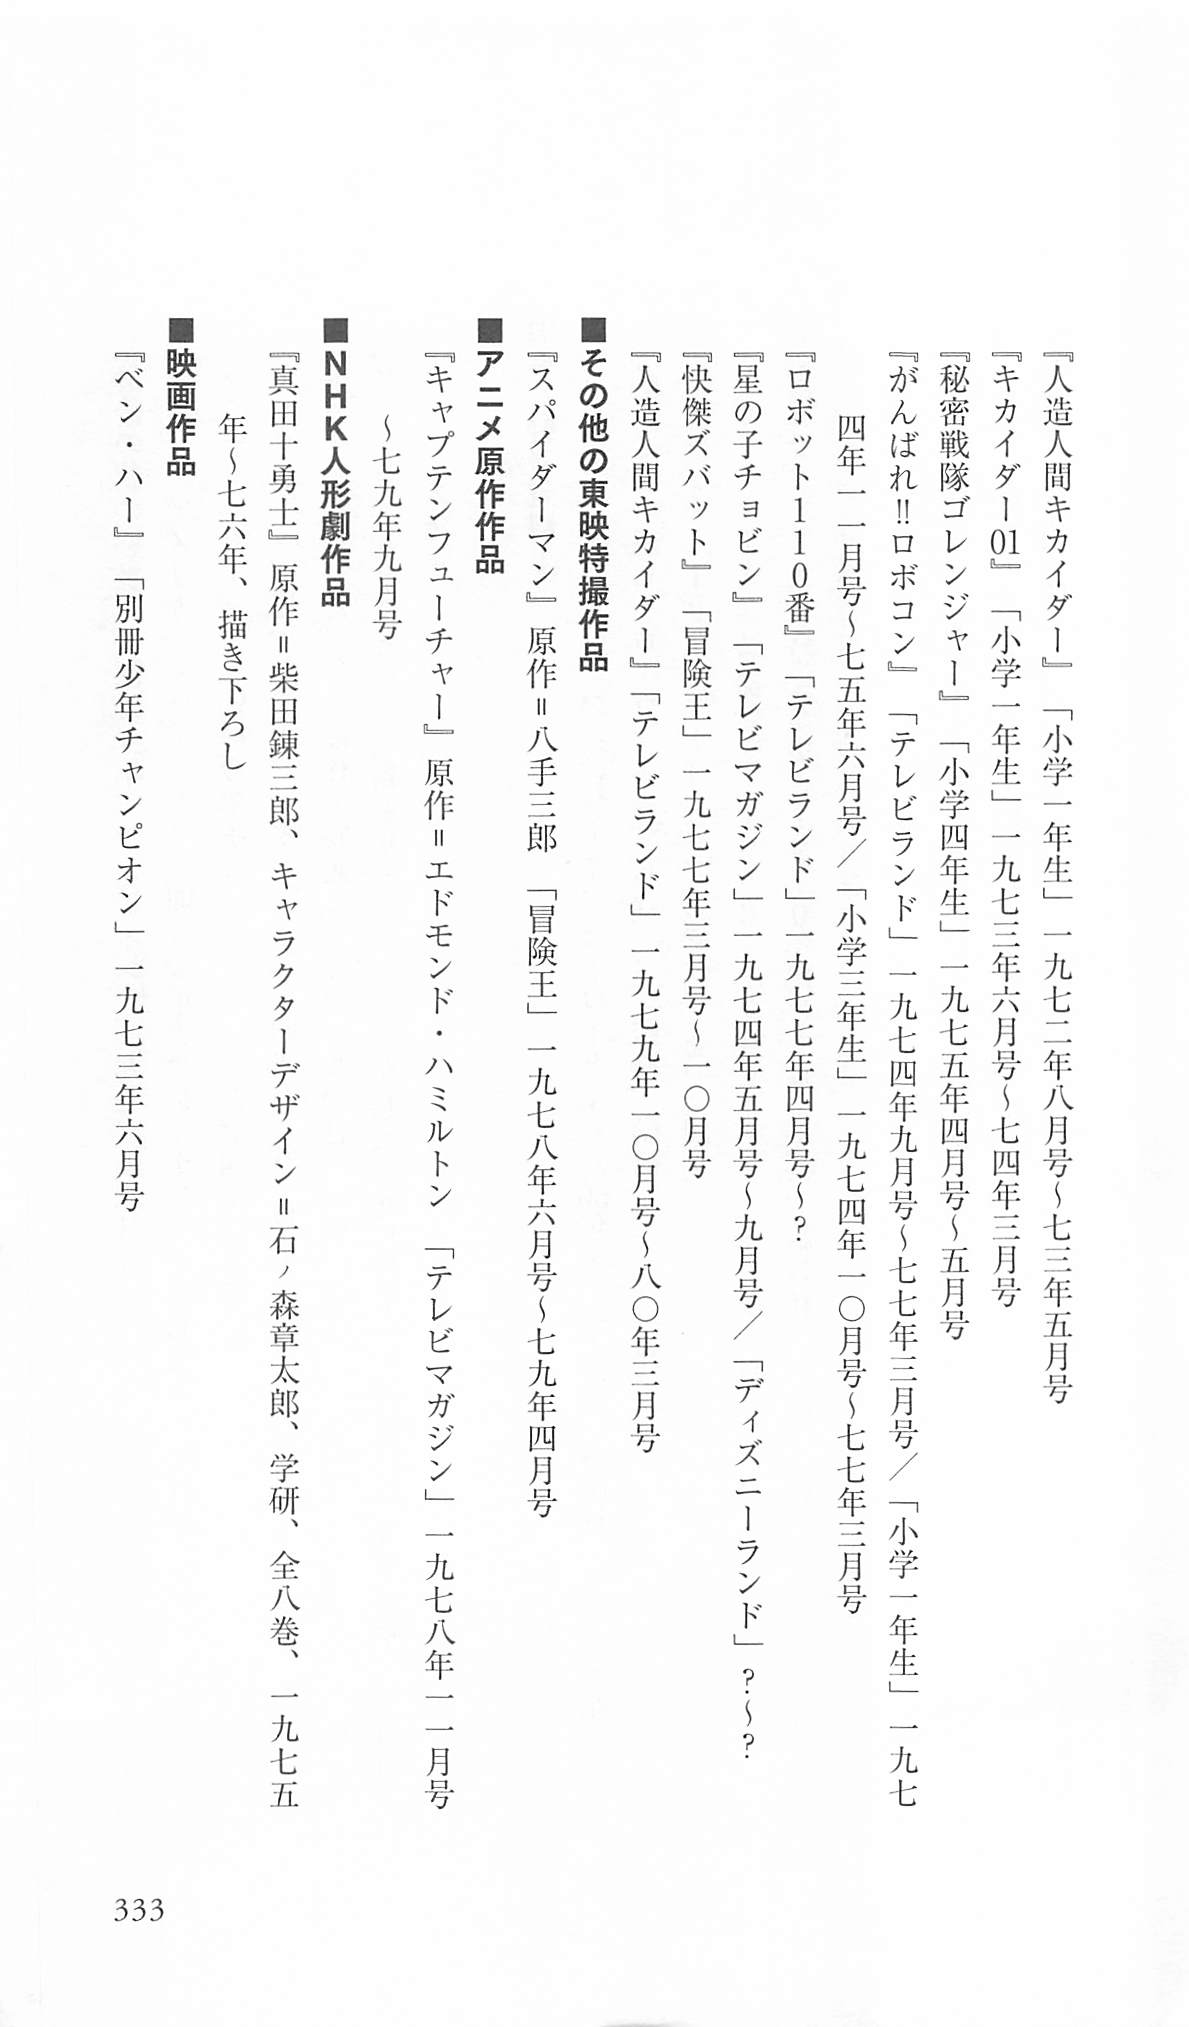 『人造人間キカイダー』「小学一年生」一九七二年八月号〜七三年五月号
『キカイダー01』「小学一年生」一九七三年六月号〜七四年三月号
『秘密戦隊ゴレンジャー』「小学四年生」一九七五年四月号〜五月号
『がんばれ!!ロボコン』「テレビランド」一九七四年九月号〜七七年三月号／「小学一年生」一九七
四年一一月号〜七五年六月号／「小学三年生」一九七四年一〇月号〜七七年三月号
『ロボット110番』「テレビランド」一九七七年四月号〜?
『星の子チョビン』「テレビマガジン」一九七四年五月号〜九月号／「ディズニーランド」?〜?
『快傑ズバット』「冒険王」一九七七年三月号〜一〇月号
『人造人間キカイダー』「テレビランド」一九七九年一〇月号〜八〇年三月号
■その他の東映特撮作品
『スパイダーマン』原作=八手三郎 「冒険王」一九七八年六月号〜七九年四月号
■アニメ原作作品
『キャプテンフューチャー』原作=エドモンド・ハミルトン 「テレビマガジン」一九七八年一一月号
〜七九年九月号
■NHK人形劇作品
『真田十勇士』原作=柴田錬三郎、キャラクターデザイン=石ノ森章太郎、学研、全八巻、一九七五
年〜七六年、描き下ろし
■映画作品
『ベン・ハー』「別冊少年チャンピオン」一九七三年六月号
333